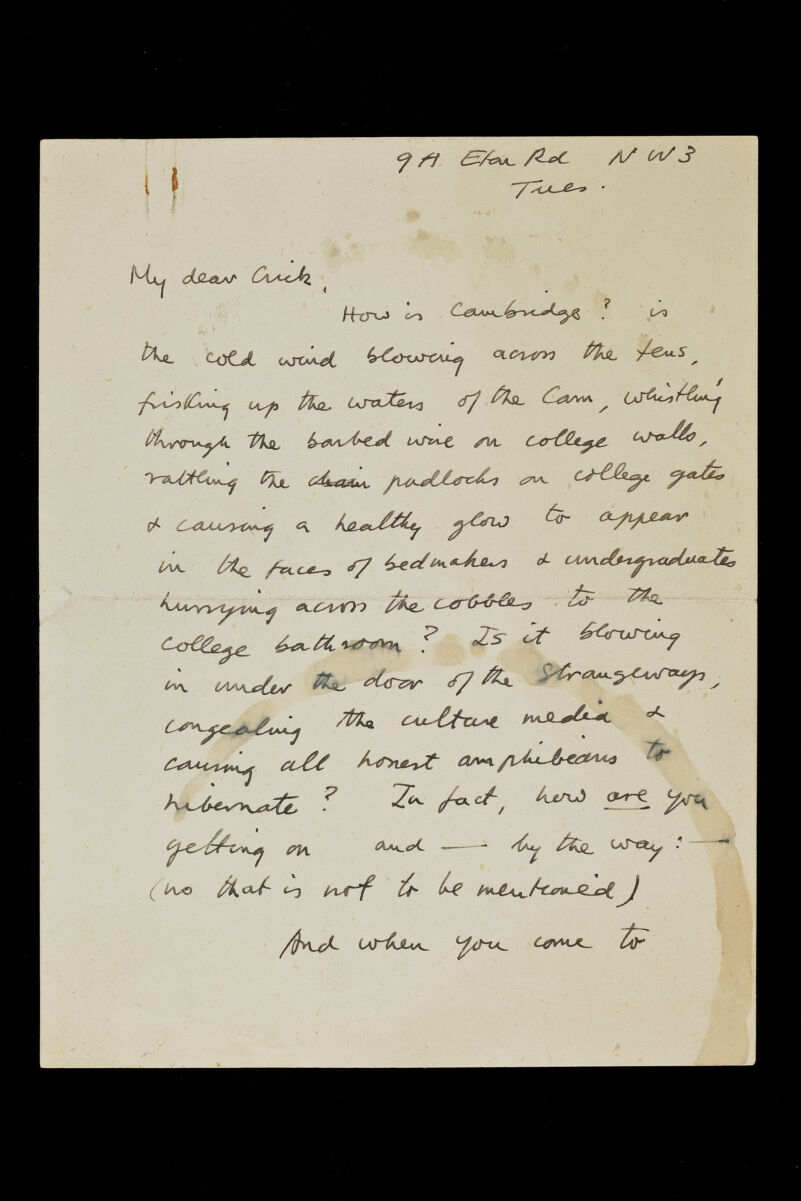 9A Eton Rd NW3
Tues.
My dear Crick,
How is Cambridge? is
the cold wind blowing across the fens,
frisking up the waters of the Cam, whistling
through the barbed wire on college walls,
rattling the chain padlocks on college gates
& causing a healthy glow to appear
in the faces of bedmakers & undergraduates
hurrying across the cobbles to the
college bathroom? Is it blowing
in under the door of the Strangeways,
congealing the culture media &
causing all honest amphibeans to
hibernate? In fact, how are you
getting on and — by the way: —
(no that is not to be mentioned)
And when you come to